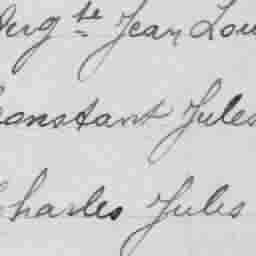 Aug.te Jean Lou
Constant Jules
Charles Jules